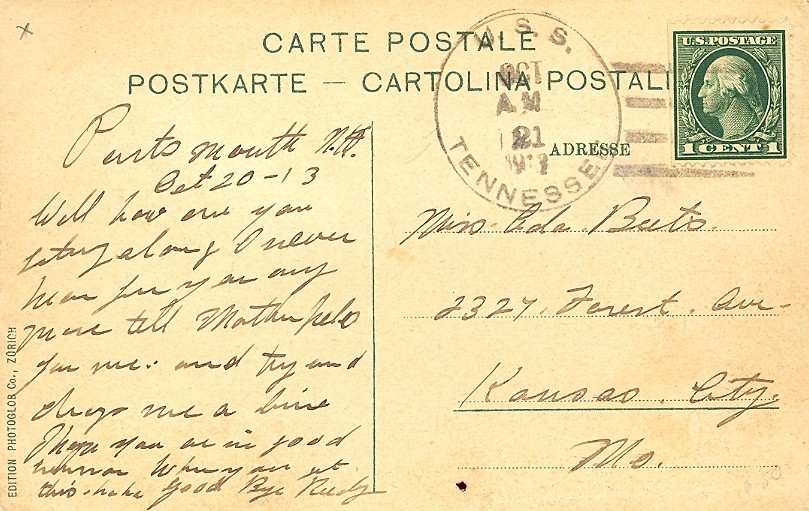 CARTE POSTALE
POSTKARTE — CARTOLINA POSTALE
U.S.S. TENNESSEE
OCT
AM
21
U.S. POSTAGE
1 CENT 1
ADRESSE
Portsmouth N.H.
Oct 20-13
Well how are you
geting along I never
hear for you any
more tell Mother helo
for me. and try and
drop me a line
I hope you are in good
when you get
this. Good Bye
Miss Eda Beets.
2327. Forest. Ave-
Kansas. City.
Mo.
EDITION PHOTOGLOB Co., ZÜRICH